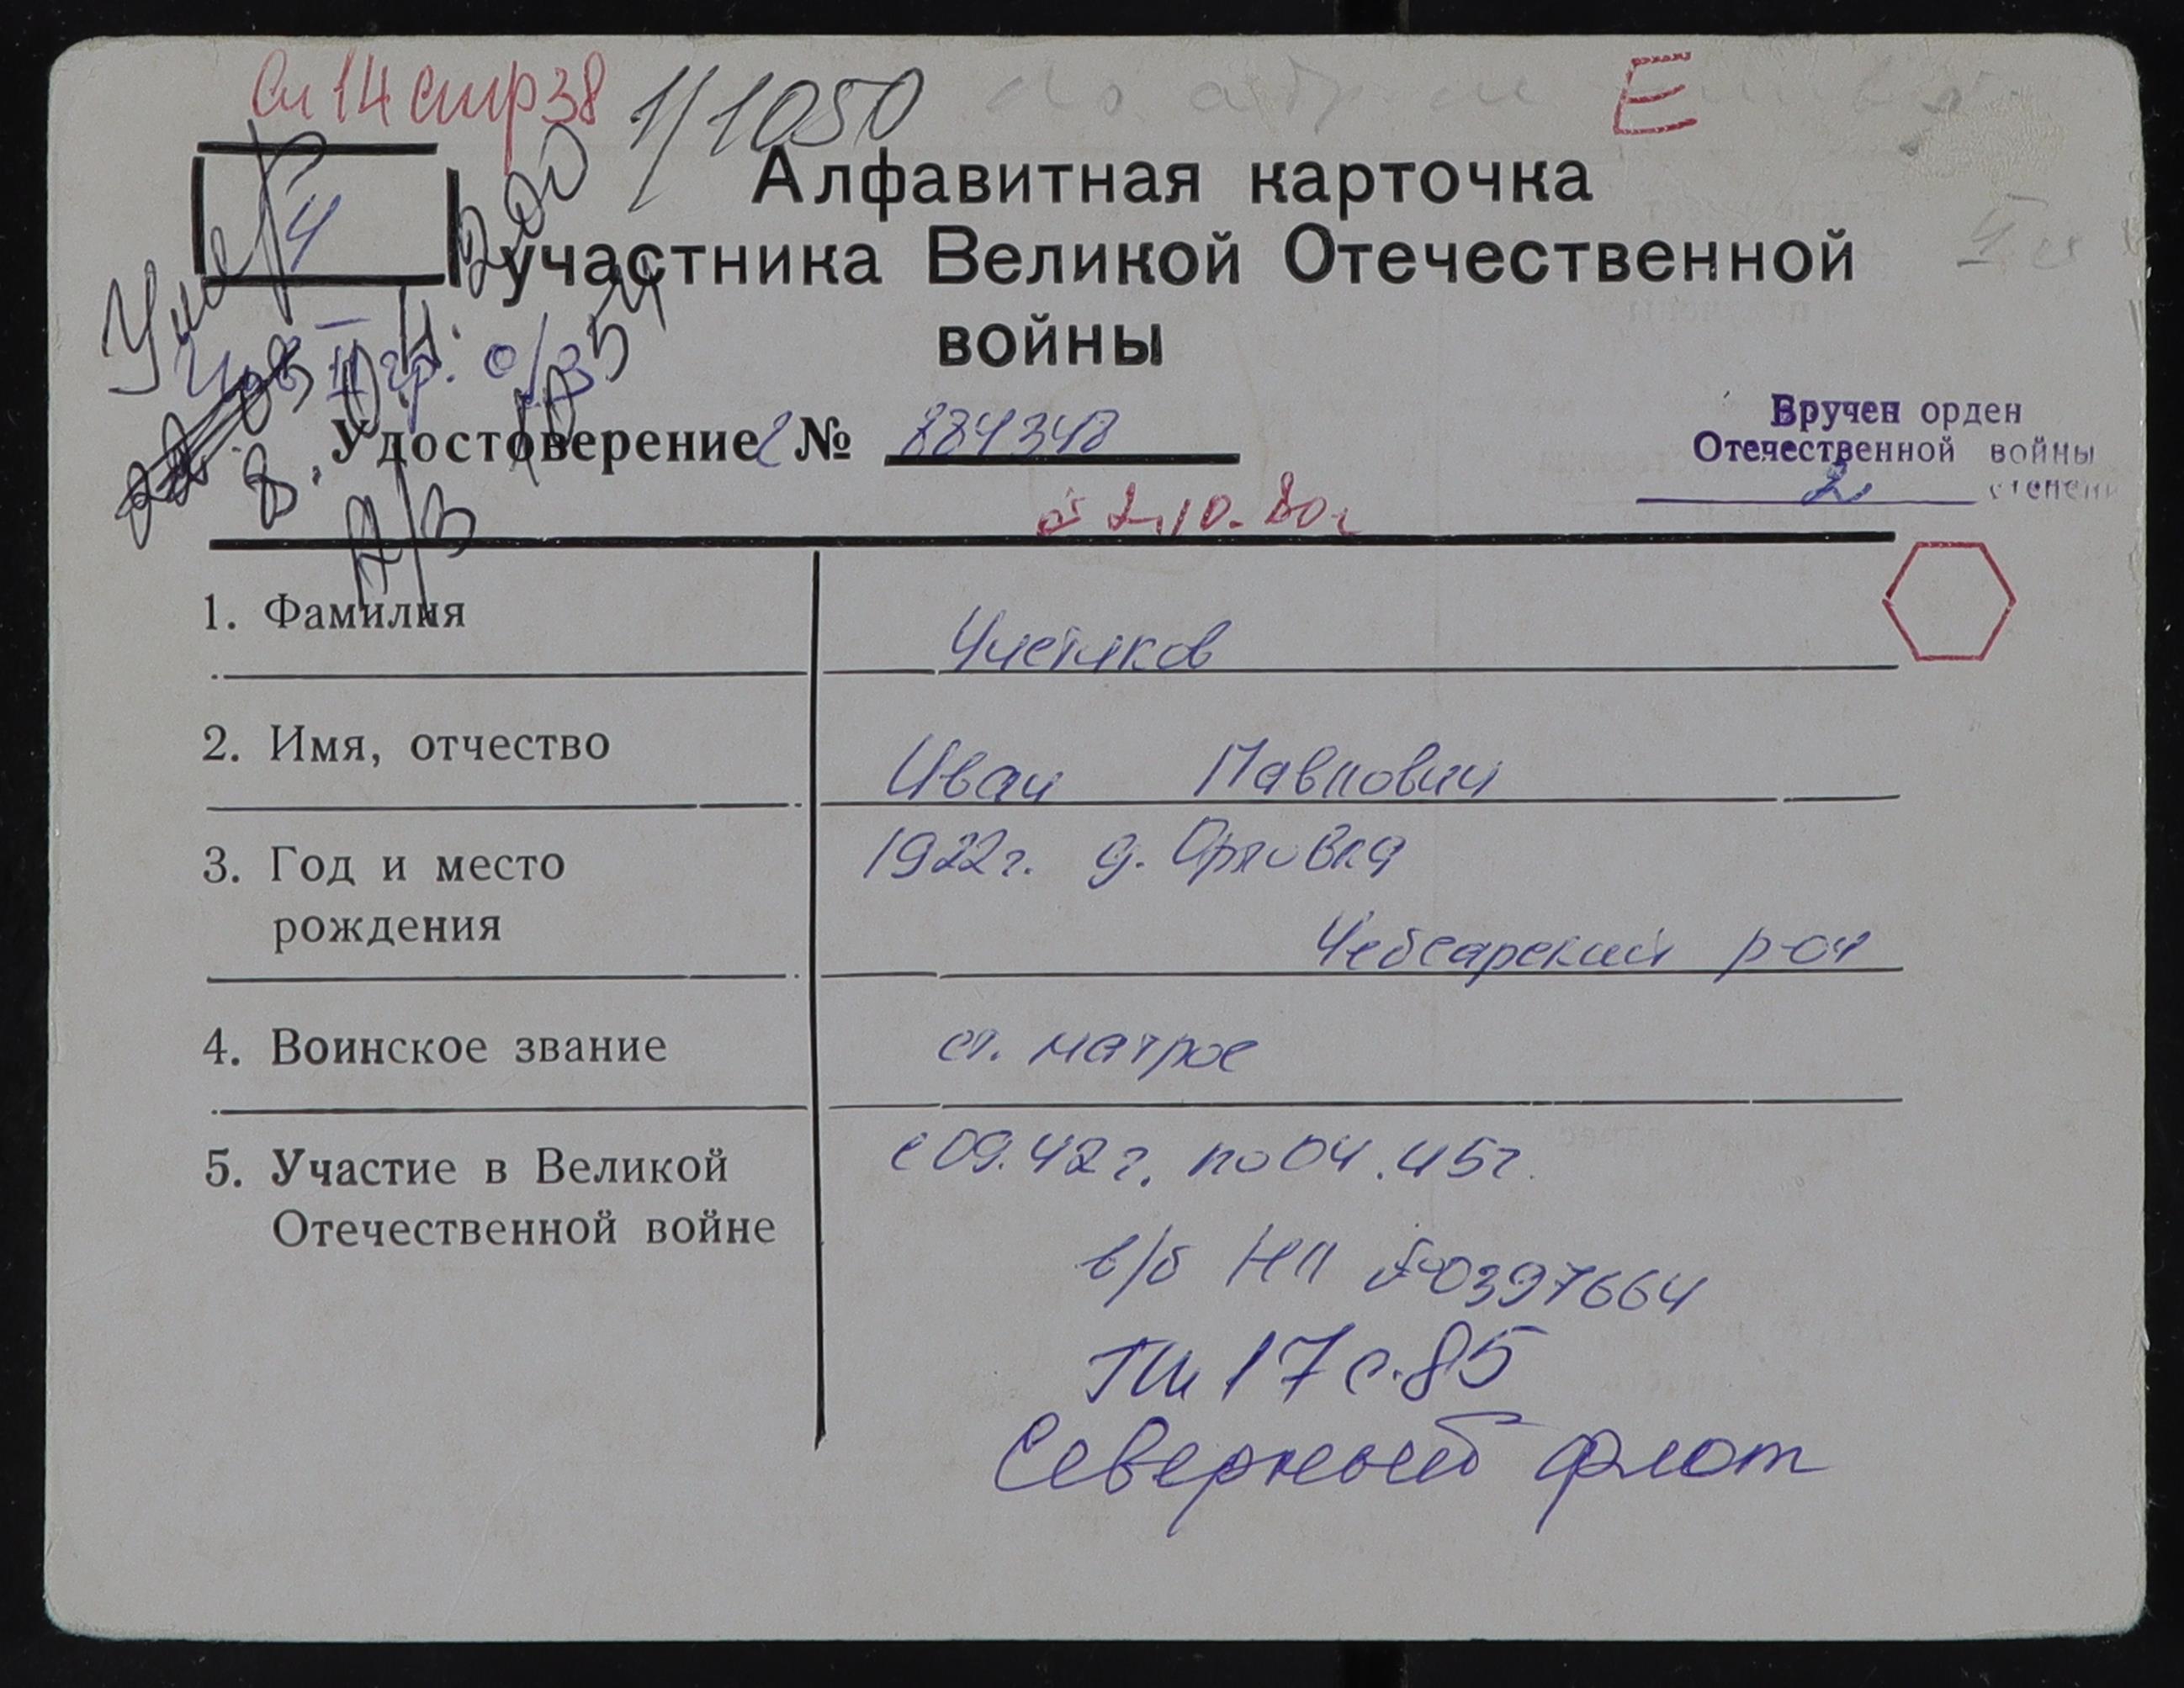 Сп 14 стр 38
1/1050
Е
Ч
Умер
Алфавитная карточка
участника Великой Отечественной
войны
Инв. II гр. о/з
Удостоверение № 884348
от 2.10.80г
Вручен орден
Отечественной войны
2 степени
1. Фамилия
Чистяков
2. Имя, отчество
Иван Павлович
3. Год и место
рождения
1922г. д.
Чебсарский р-он
4. Воинское звание
ст. матрос
5. Участие в Великой
Отечественной войне
с 09.42г. по 04.45г.
в/б НП №0397664
17 с.85
Северный флот